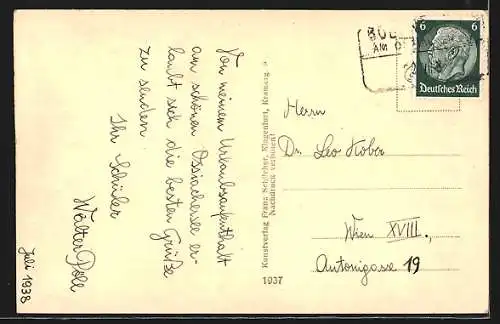 Von meinem Urlaubsaufenthalt
am schönen Ossiachersee er-
laubt sich die besten Grüße
zu senden
Ihr Schüler
Walter Pole
Juli 1938
Kunstverlag Franz Schilcher, Klagenfurt, Kramerg. 9
Nachdruck verboten!
1937
BOD
AM
6 6
Deutsches Reich
Herrn
Dr. Leo Kober
Wien XVIII.,
Antonigasse 19